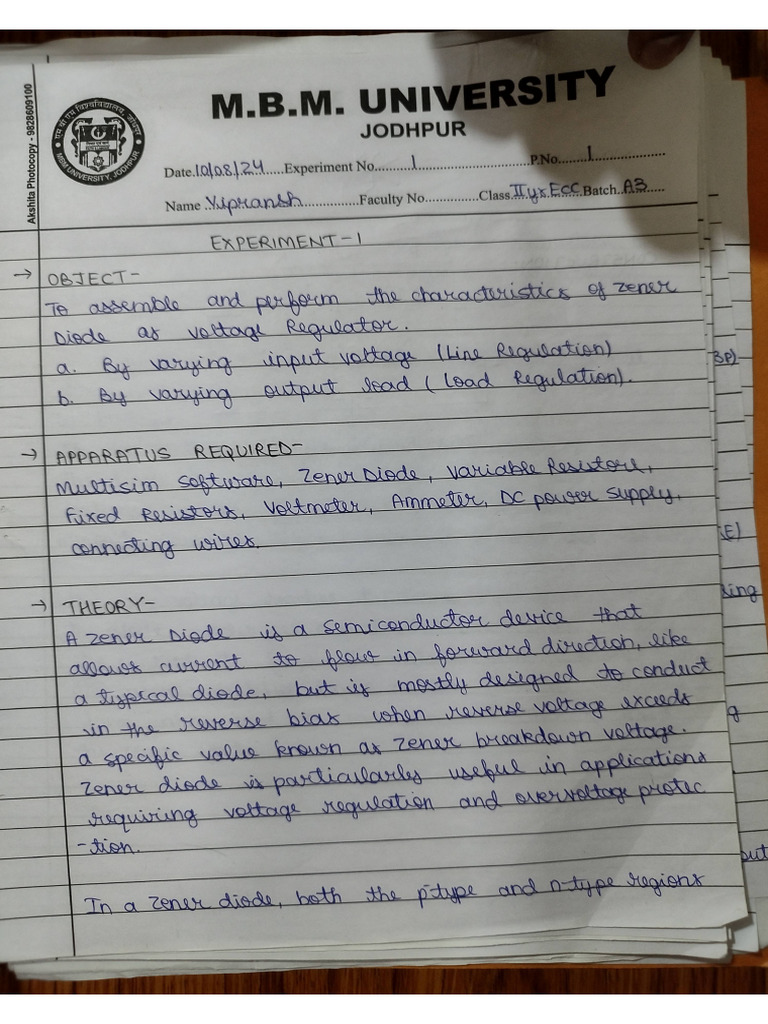 M.B.M. UNIVERSITY
JODHPUR
Akshita Photocopy - 9828609100
MBM UNIVERSITY, JODHPUR
Date.10/08/24.....Experiment No.........1..............................P.No.........1...................
Name .Vipransh................Faculty No...............Class.II yr ECC.Batch..A3......
EXPERIMENT-1
→ OBJECT-
To assemble and perform the characteristics of zener
Diode as voltage Regulator.
a. By varying input voltage (Line Regulation)
b. By varying output load ( Load Regulation).
→ APPARATUS REQUIRED-
Multisim Software, Zener Diode, Variable Resistors,
Fixed Resistors, Voltmeter, Ammeter, DC power supply,
connecting wires.
→ THEORY-
A zener Diode is a semiconductor device that
allows current to flow in forward direction, like
a typical diode, but is mostly designed to conduct
in the reverse bias when reverse voltage exceeds
a specific value known as zener breakdown voltage.
Zener diode is particularly useful in applications
requiring voltage regulation and overvoltage protec
-tion.
In a zener diode, both the p-type and n-type regions